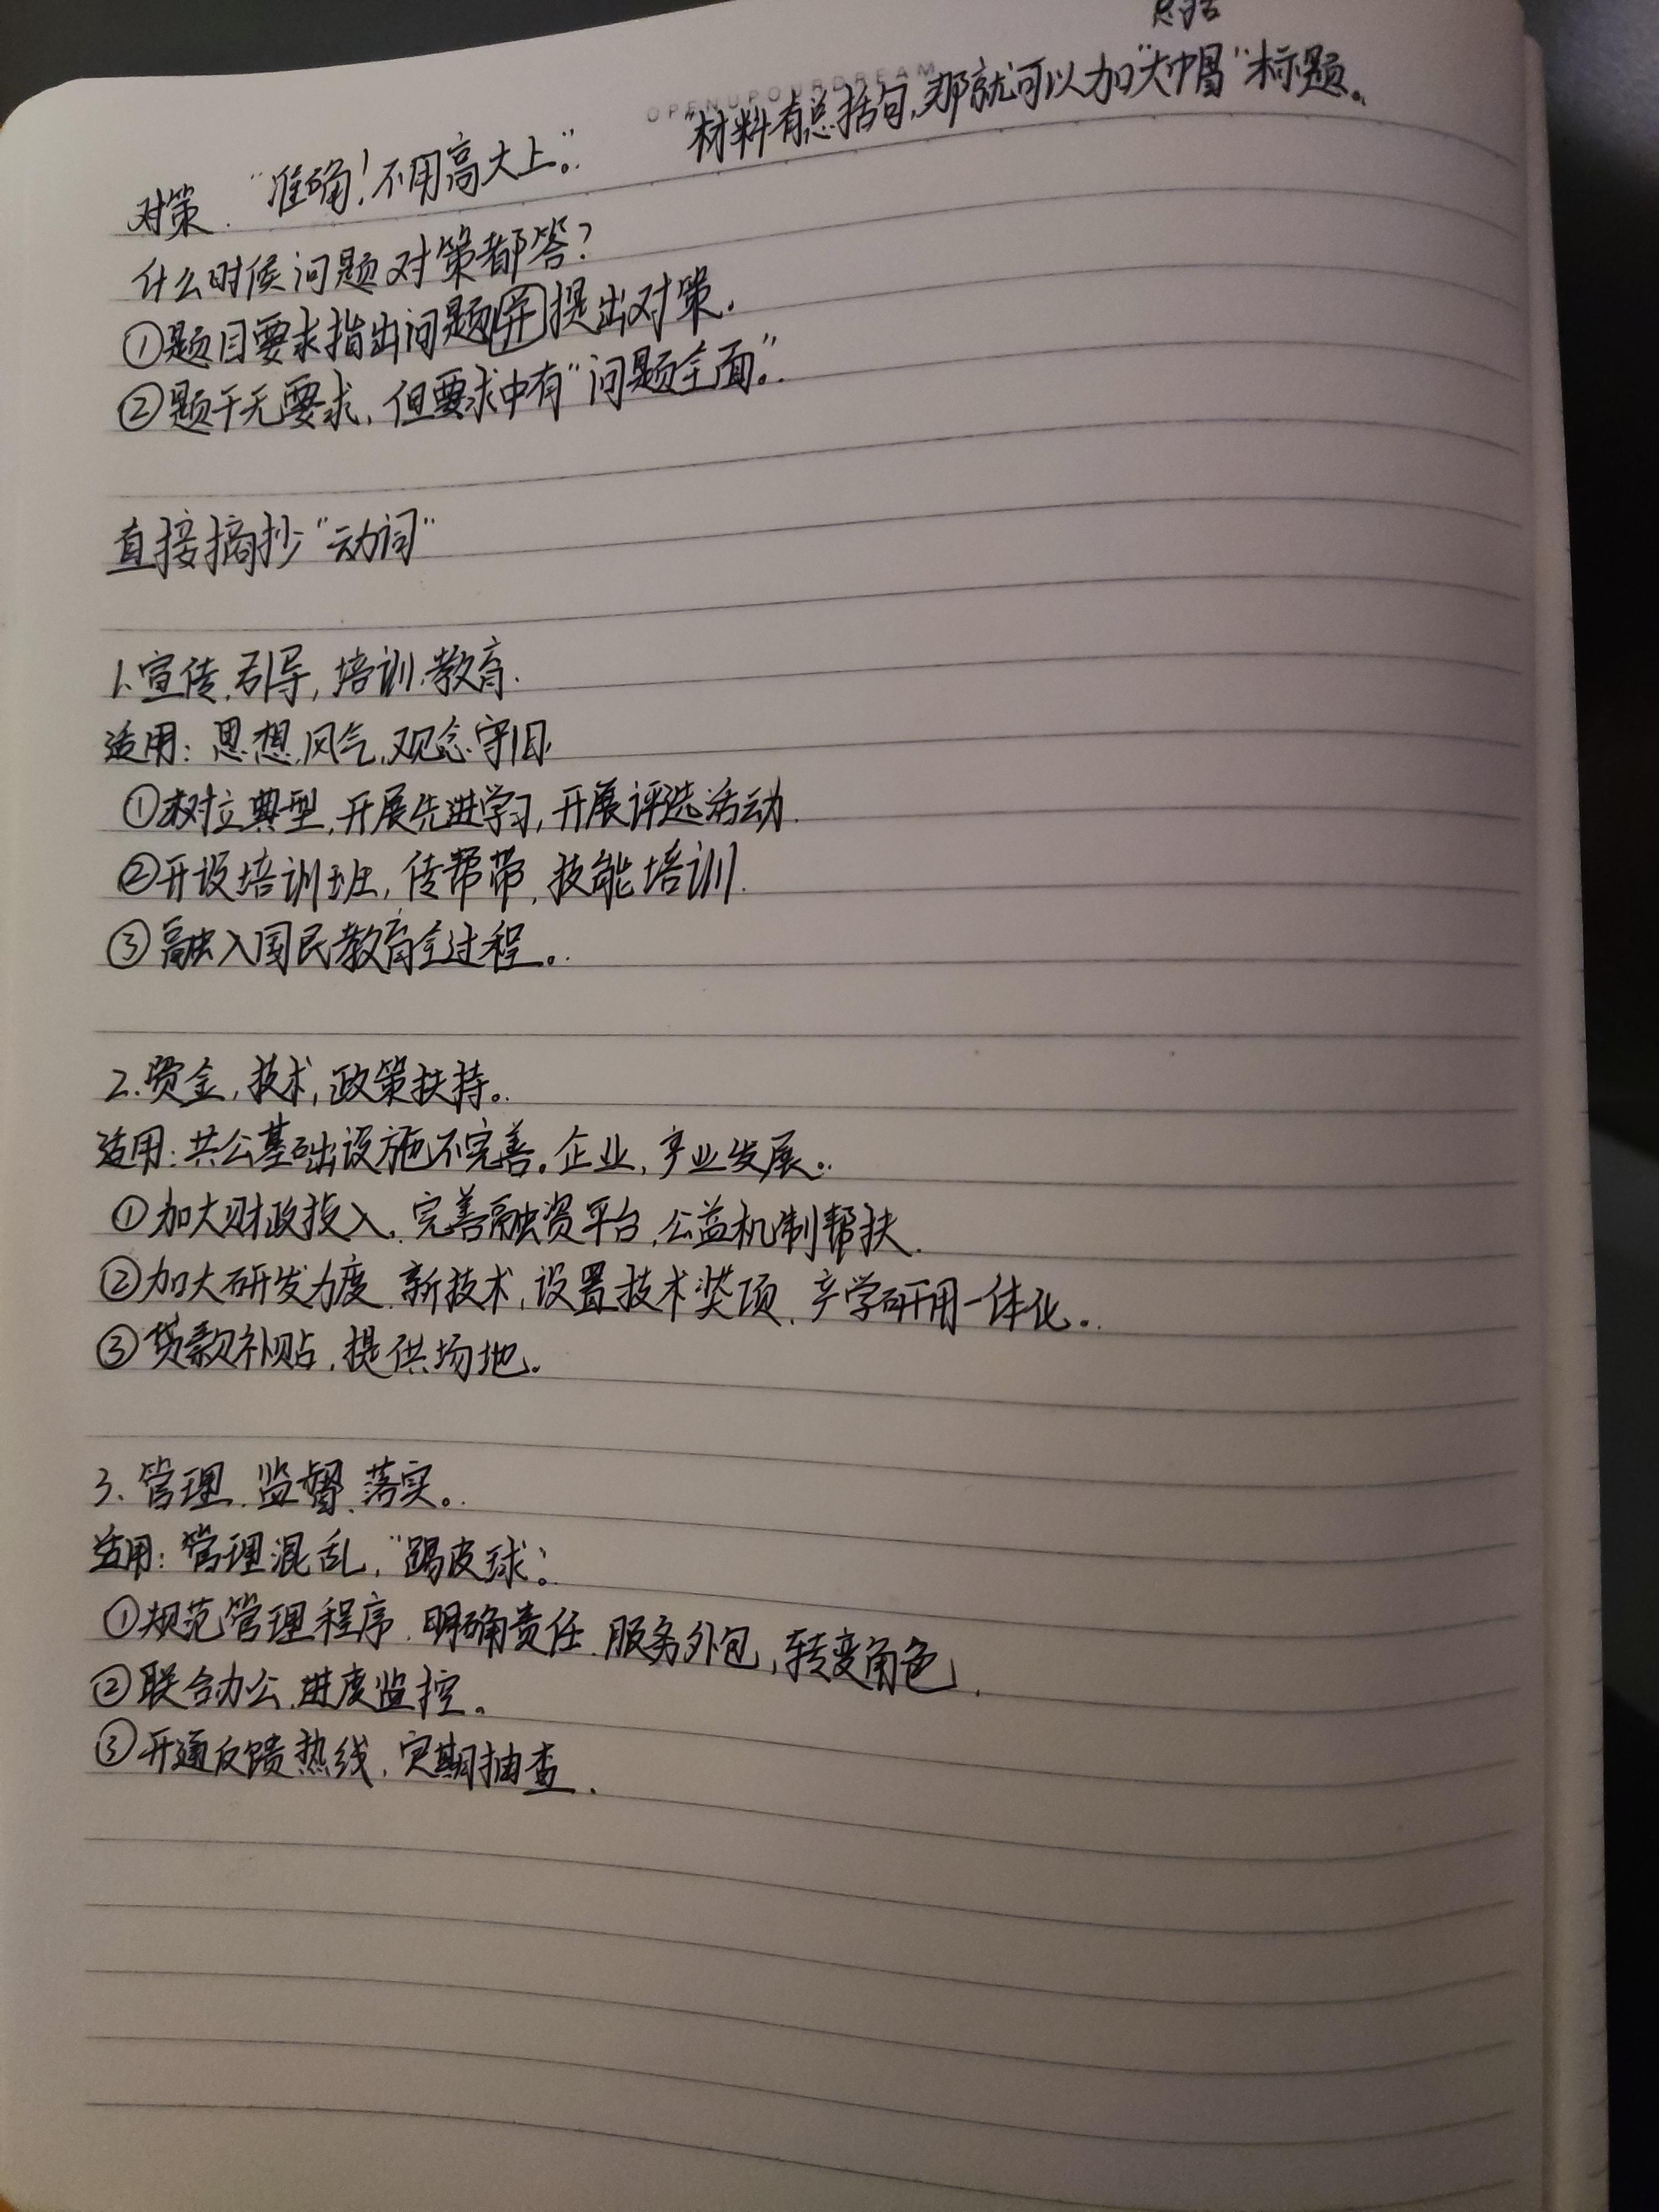 总括
OPENUPOURDREAM
"材料有总括句,那就可以加"大帽"标题。
对策. "准确!不用高大上。"
什么时候问题对策都答?
①题目要求指出问题并提出对策.
②题干无要求,但要求中有"问题全面".
直接摘抄"动词"
1.宣传,引导,培训,教育.
适用:思想,风气,观念守旧.
①树立典型,开展先进学习,开展评选活动.
②开设培训班,传帮带,技能培训.
③融入国民教育全过程。
2.资金,技术,政策扶持。
适用:共公基础设施不完善。企业,产业发展。
①加大财政投入,完善融资平台,公益机制帮扶.
②加大研发力度,新技术,设置技术奖项,产学研用一体化。
③贷款补贴,提供场地。
3.管理,监督,落实。
适用:管理混乱,"踢皮球".
①规范管理程序.明确责任.服务外包,转变角色.
②联合办公,进度监控。
③开通反馈热线,定期抽查.